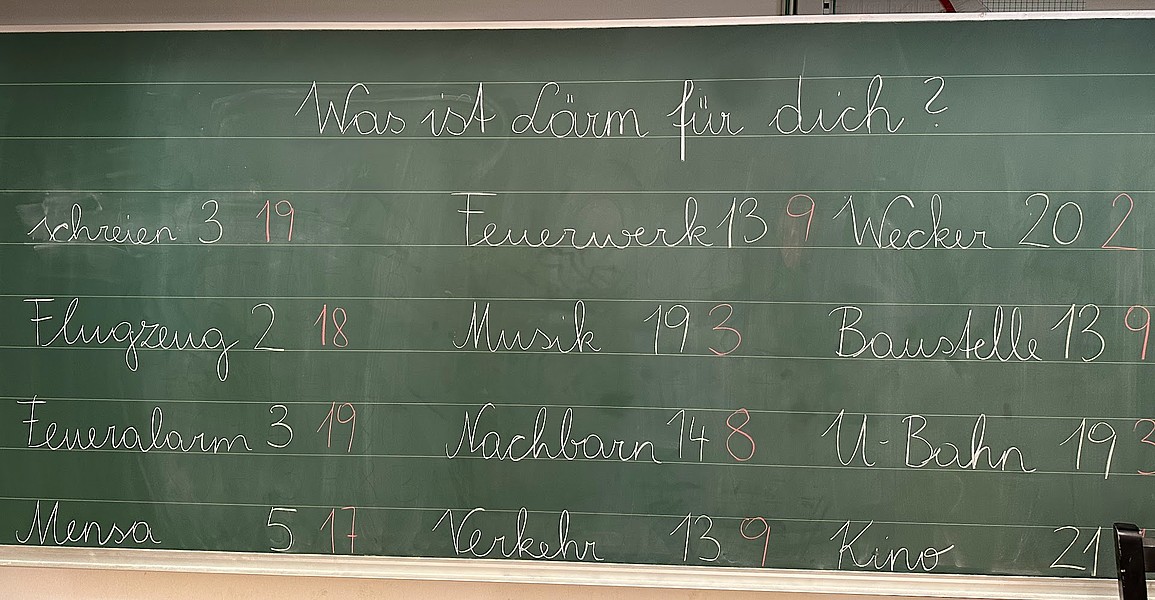 Was ist Lärm für dich?
schreien 3 19 Feuerwerk 13 9 Wecker 20 2
Flugzeug 2 18 Musik 19 3 Baustelle 13 9
Feueralarm 3 19 Nachbarn 14 8 U-Bahn 19 3
Mensa 5 17 Verkehr 13 9 Kino 21